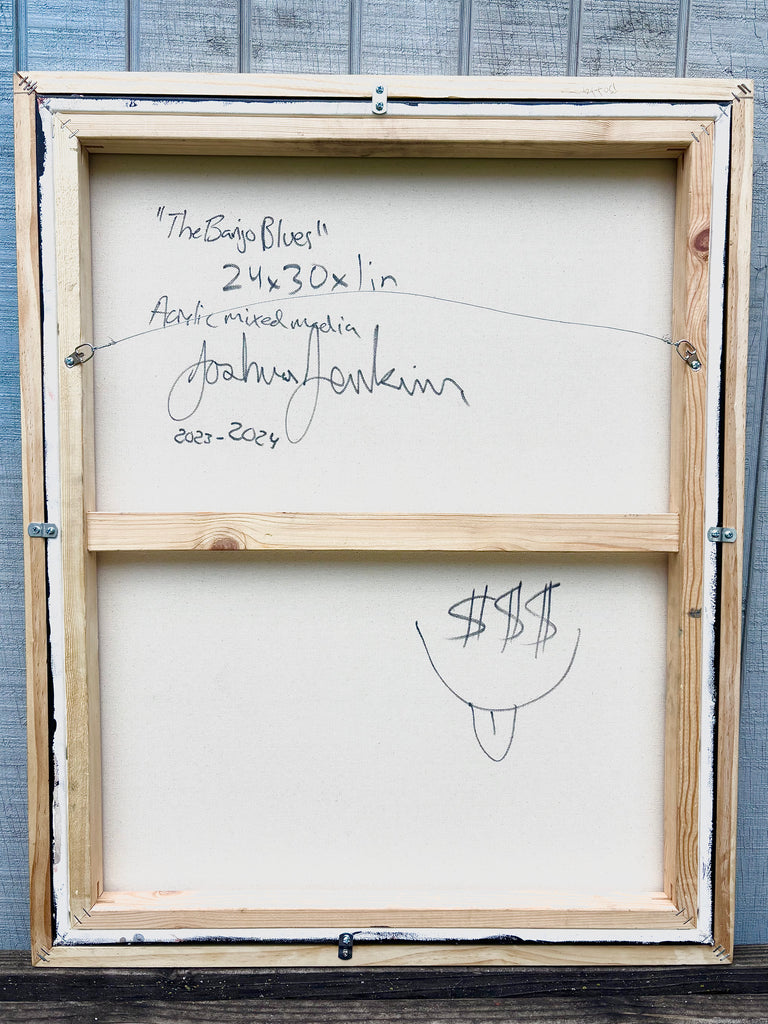 "The Banjo Blues"
24x30x1in
Acrylic mixed media
Joshua Jenkins
2023-2024
$$$